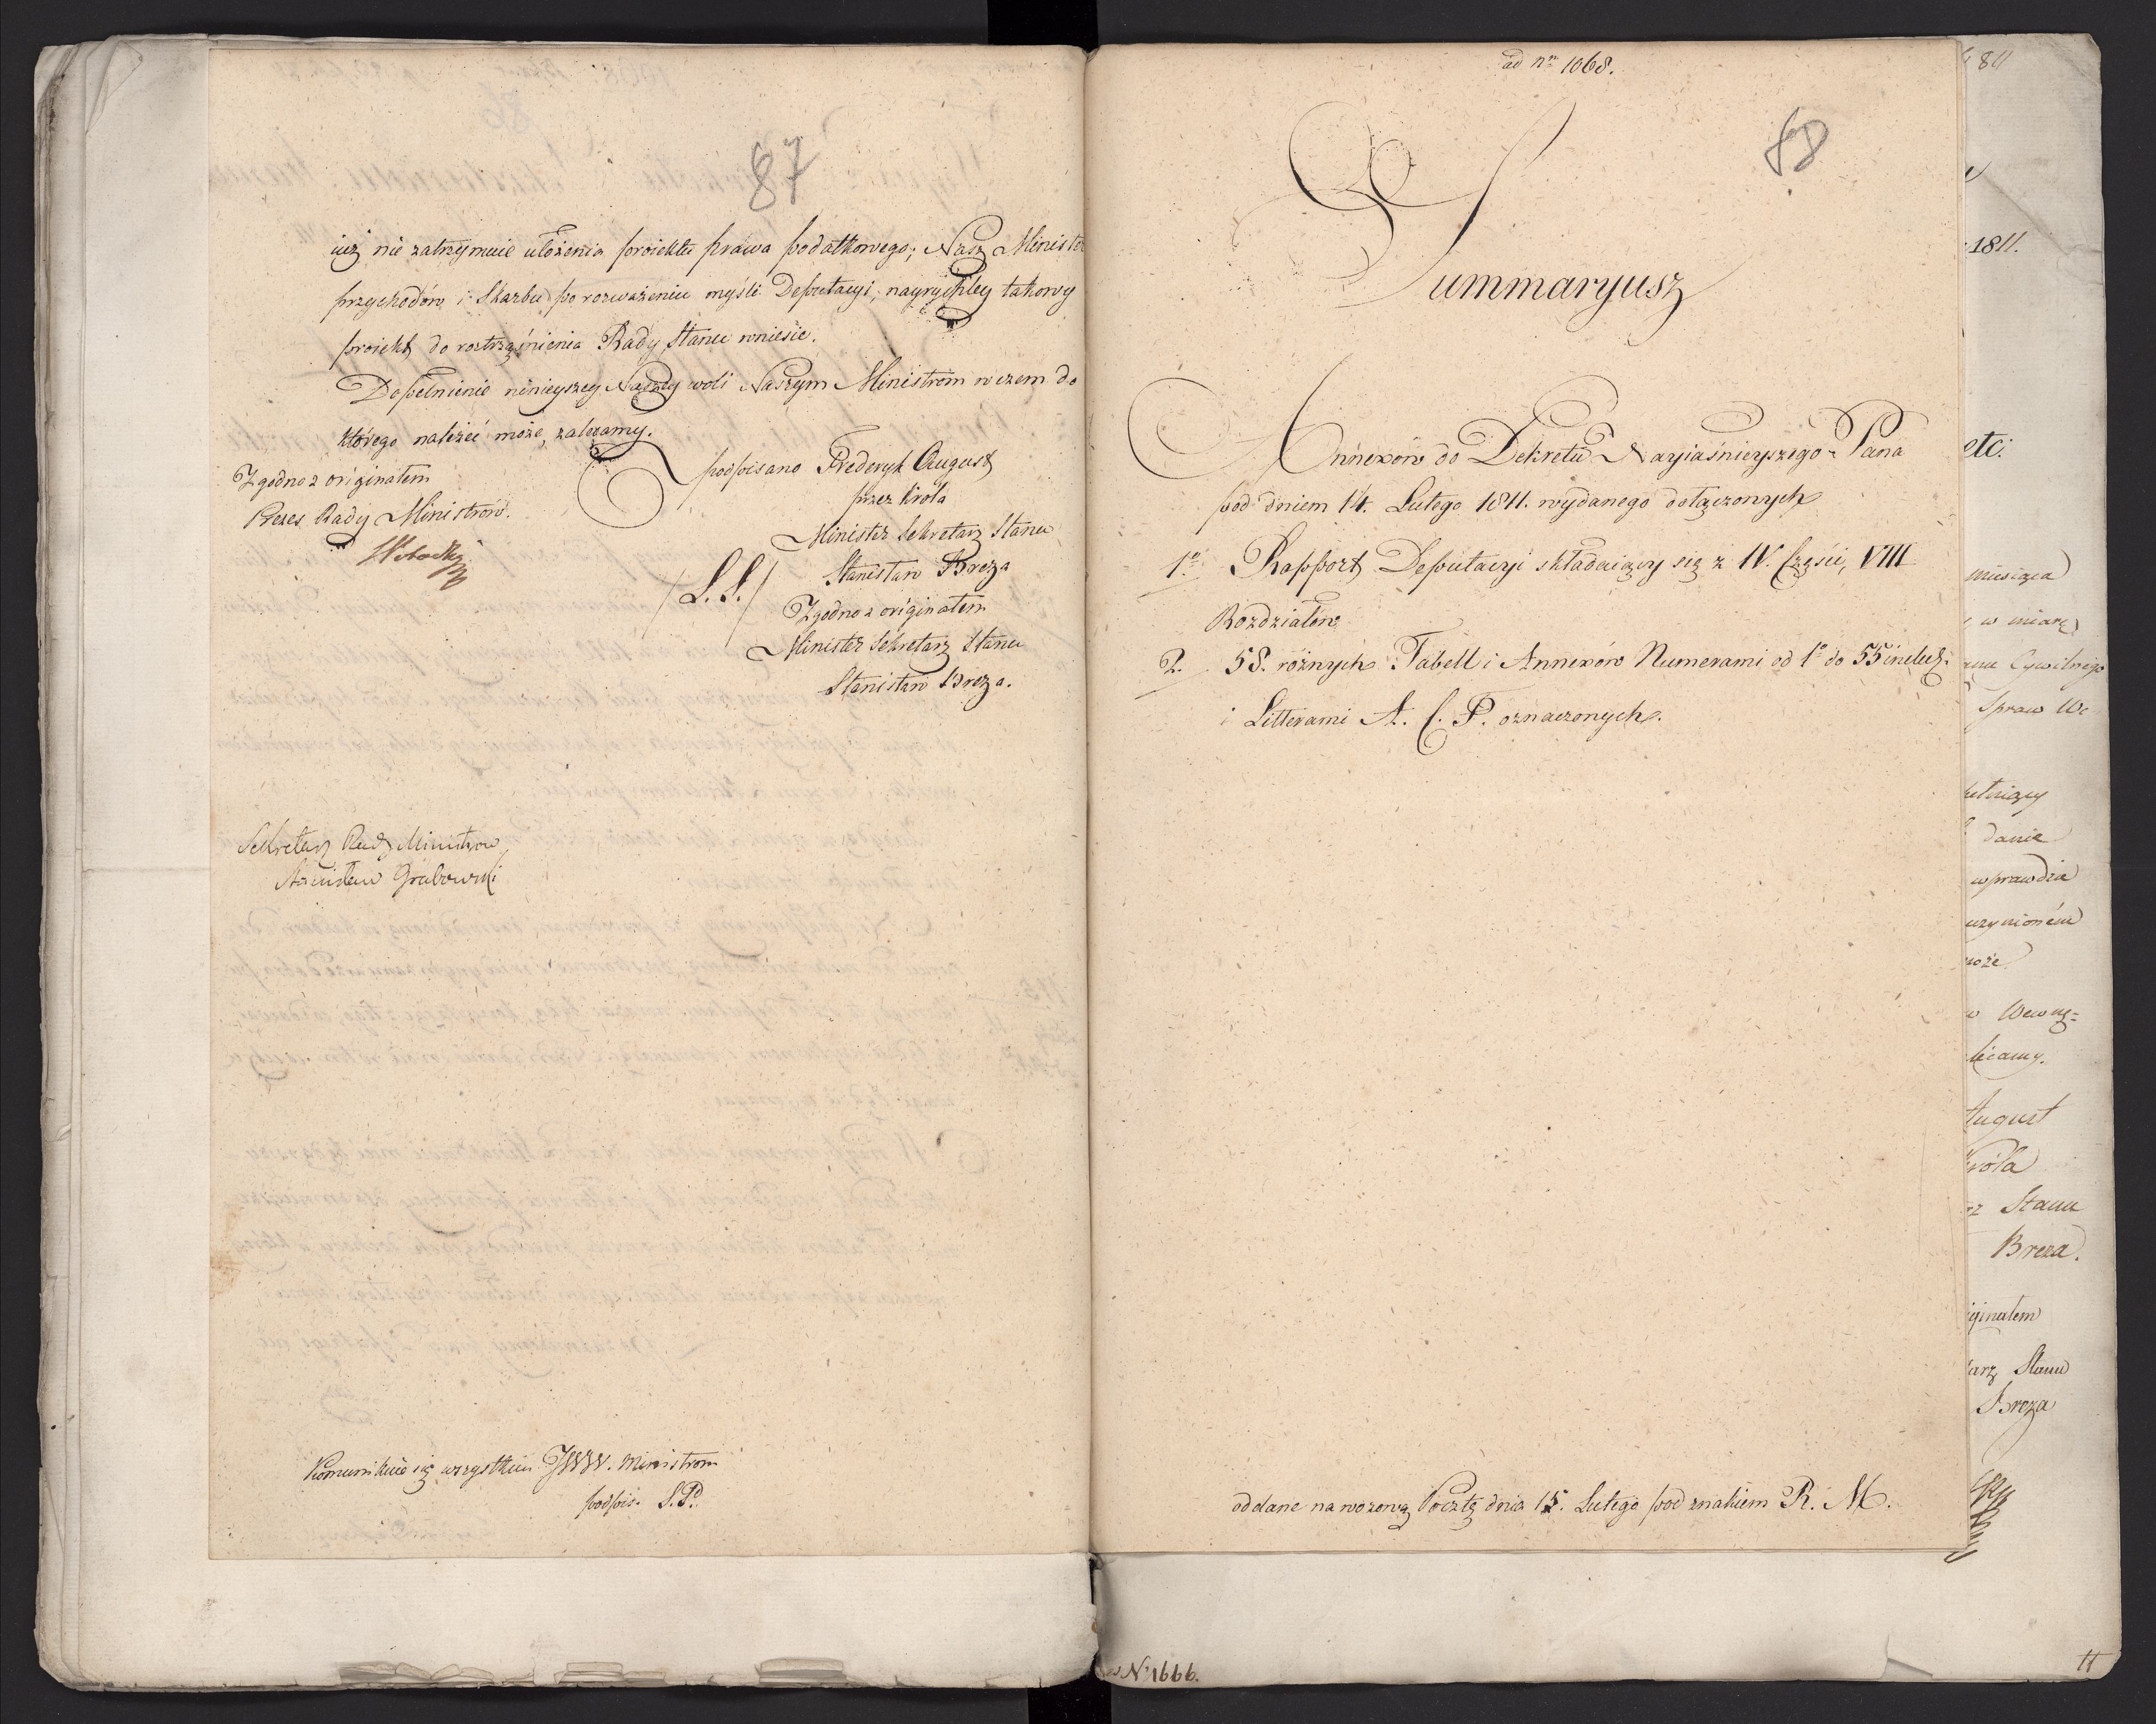 87
iuż nie zatrzymuie ułożenia proiektu prawa podatkowego; Nasz Ministe
przychodów i Skarbu po rozważeniu myśli Deputacyi, nayrychley takowy
proiekt do roztrząśnienia Rady Stanu wniesie.
Dopełnienie ninieyszey Naszey woli Naszym Ministrom w czem do
którego należeć może, zalecamy.
Zgodno z originałem
Prezes Rady Ministrów.
podpisano Frederyk August
przez Króla
Minister Sekretarz Stanu
Stanisław Breza
/L.S./
Zgodno z originałem
Minister Sekretarz Stanu
Stanisław Breza.
Sekretarz Rady Ministrow
Stanisław Grabowski
Komunikuie się wszystkim JWW. Ministrom
podpis. S. P.
ad nr 1068.
88
Summaryusz
Annexów do Dekretu Nayiaśnieyszego Pana
pod dniem 14. Lutego 1811. wydanego dołączonych
1o Rapport Deputacyi składaiący się z IV. Części, VIII
Rozdziałów
2. 58. różnych Tabell i Annexów Numerami od 1o do 55 inclus:
i Litterami A. C. F. oznaczonych.
oddane na wozową Pocztę dnia 15. Lutego pod znakiem R. M.
811
1811.
etc.
miesiąca
w miarę
Cywilnego
Spraw We
danie
wprawdzie
może
w Wewnę=
lecamy.
August
Króla
rz Stanu
Breza.
iginałem
tarz Stanu
Breza
N. 1666.
11